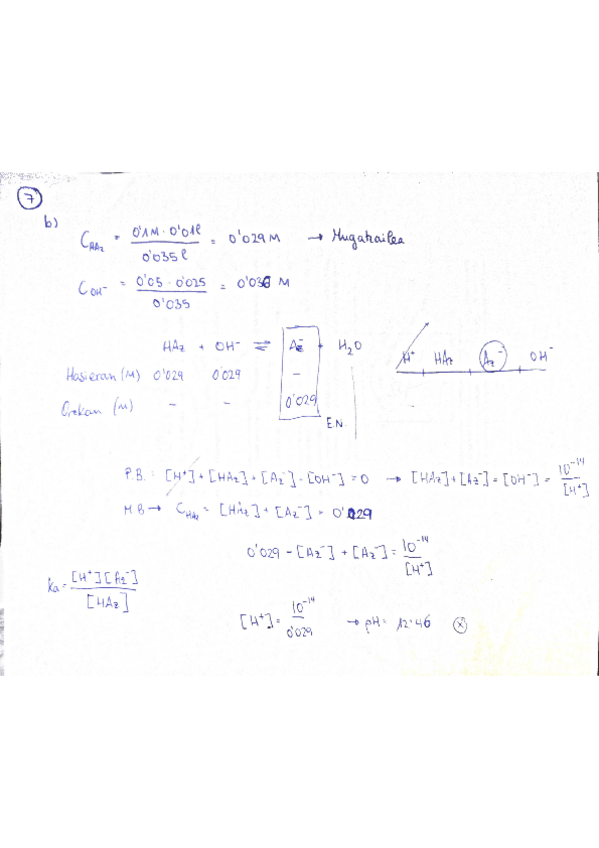 7
b) C_HAz = 0'1M · 0'01l / 0'035 l = 0'029 M → Mugatzailea
C_OH⁻ = 0'05 · 0'025 / 0'035 = 0'036 M
HAz + OH⁻ ⇌ Az⁻ + H₂O
H⁺ HAz Az⁻ OH⁻
Hasieran (M) 0'029 0'029 –
Orekan (M) – – 0'029
E.N.
P.B.: [H⁺] + [HAz] + [Az⁻] - [OH⁻] = 0 → [HAz] + [Az⁻] = [OH⁻] = 10⁻¹⁴ / [H⁺]
M.B → C_HAz = [HAz] + [Az⁻] = 0'029
0'029 - [Az⁻] + [Az⁻] = 10⁻¹⁴ / [H⁺]
Ka = [H⁺][Az⁻] / [HAz]
[H⁺] = 10⁻¹⁴ / 0'029 → pH = 12'46 (x)